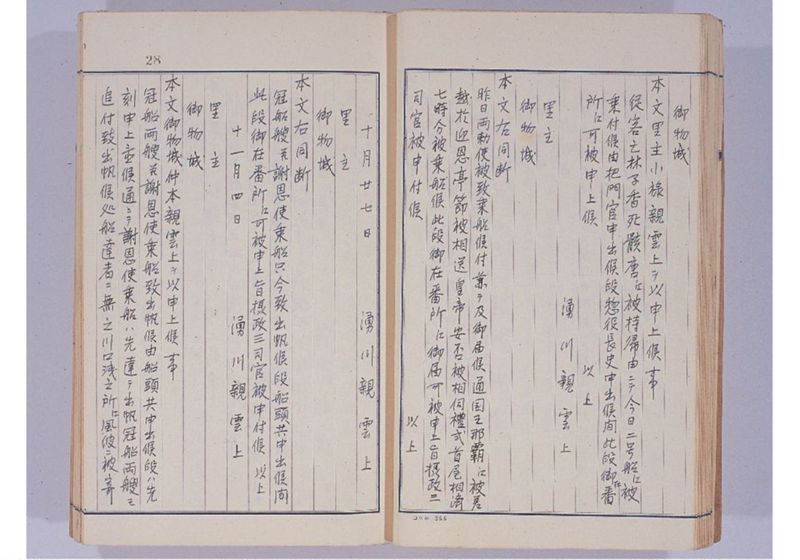 御物城
本文里主小禄親雲上ヲ以申上候事
従客之林子香死骸唐江被持帰由ニ而今日二号船江被
乗付候由把門官申出候段惣役長史申出候間此段御在番
所江可被申上候 以上
湧川親雲上
里主
御物城
本文右同断
昨日両勅使被致乗船候付兼而及御届候通国王那覇江被差
越於迎恩亭節被相送皇帝安否被相伺礼式首尾相済
七時分被乗船候此段御在番所江御届可被申上旨摂政三
司官被申付候 以上
十月廿七日 湧川親雲上
里主
御物城
本文右同断
冠船艘并謝恩使乗船只今致出帆候段船頭共申出候間
此段御在番所江可被申上旨摂政三司官被申付候 以上
十一月四日 湧川親雲上
里主
御物城
本文御物城仲本親雲上ヲ以申上候事
冠船両艘并謝恩使乗船致出帆候由船頭共申出候段ハ先
刻申上置候通ニ而謝恩使乗船ハ先達而出帆冠船両艘も
追付致出帆候処船達者ニ無之川口浅之所江風波ニ被寄
28
コクヨ 255